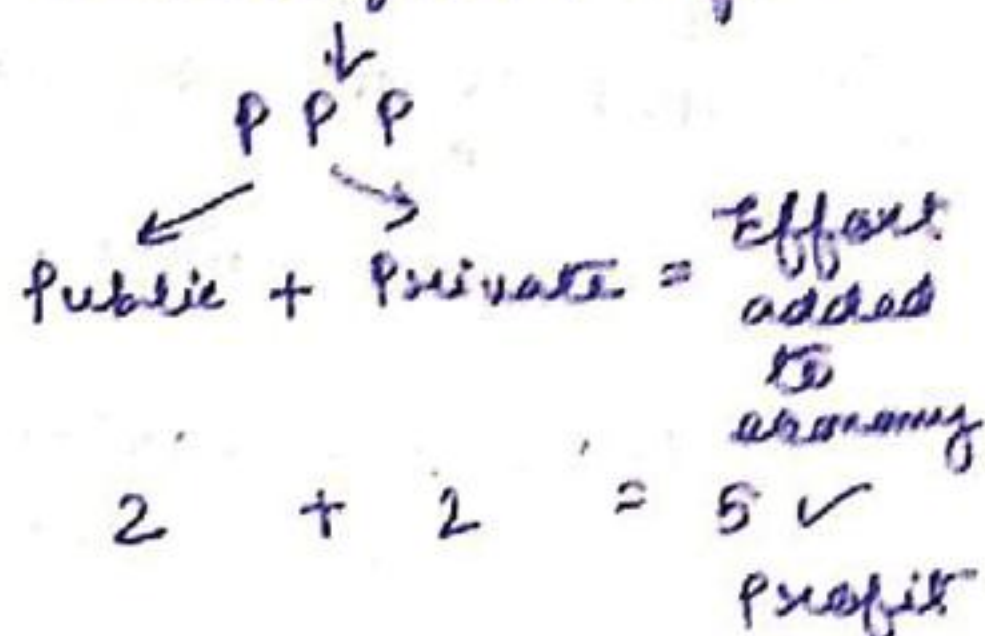 P P P
Public + Private = Effort
added
to
economy
2 + 2 = 5 ✓
Profit